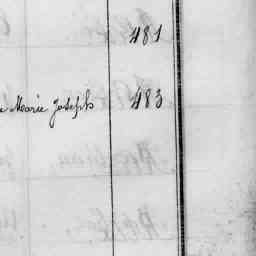 481
Marie Joseph 483